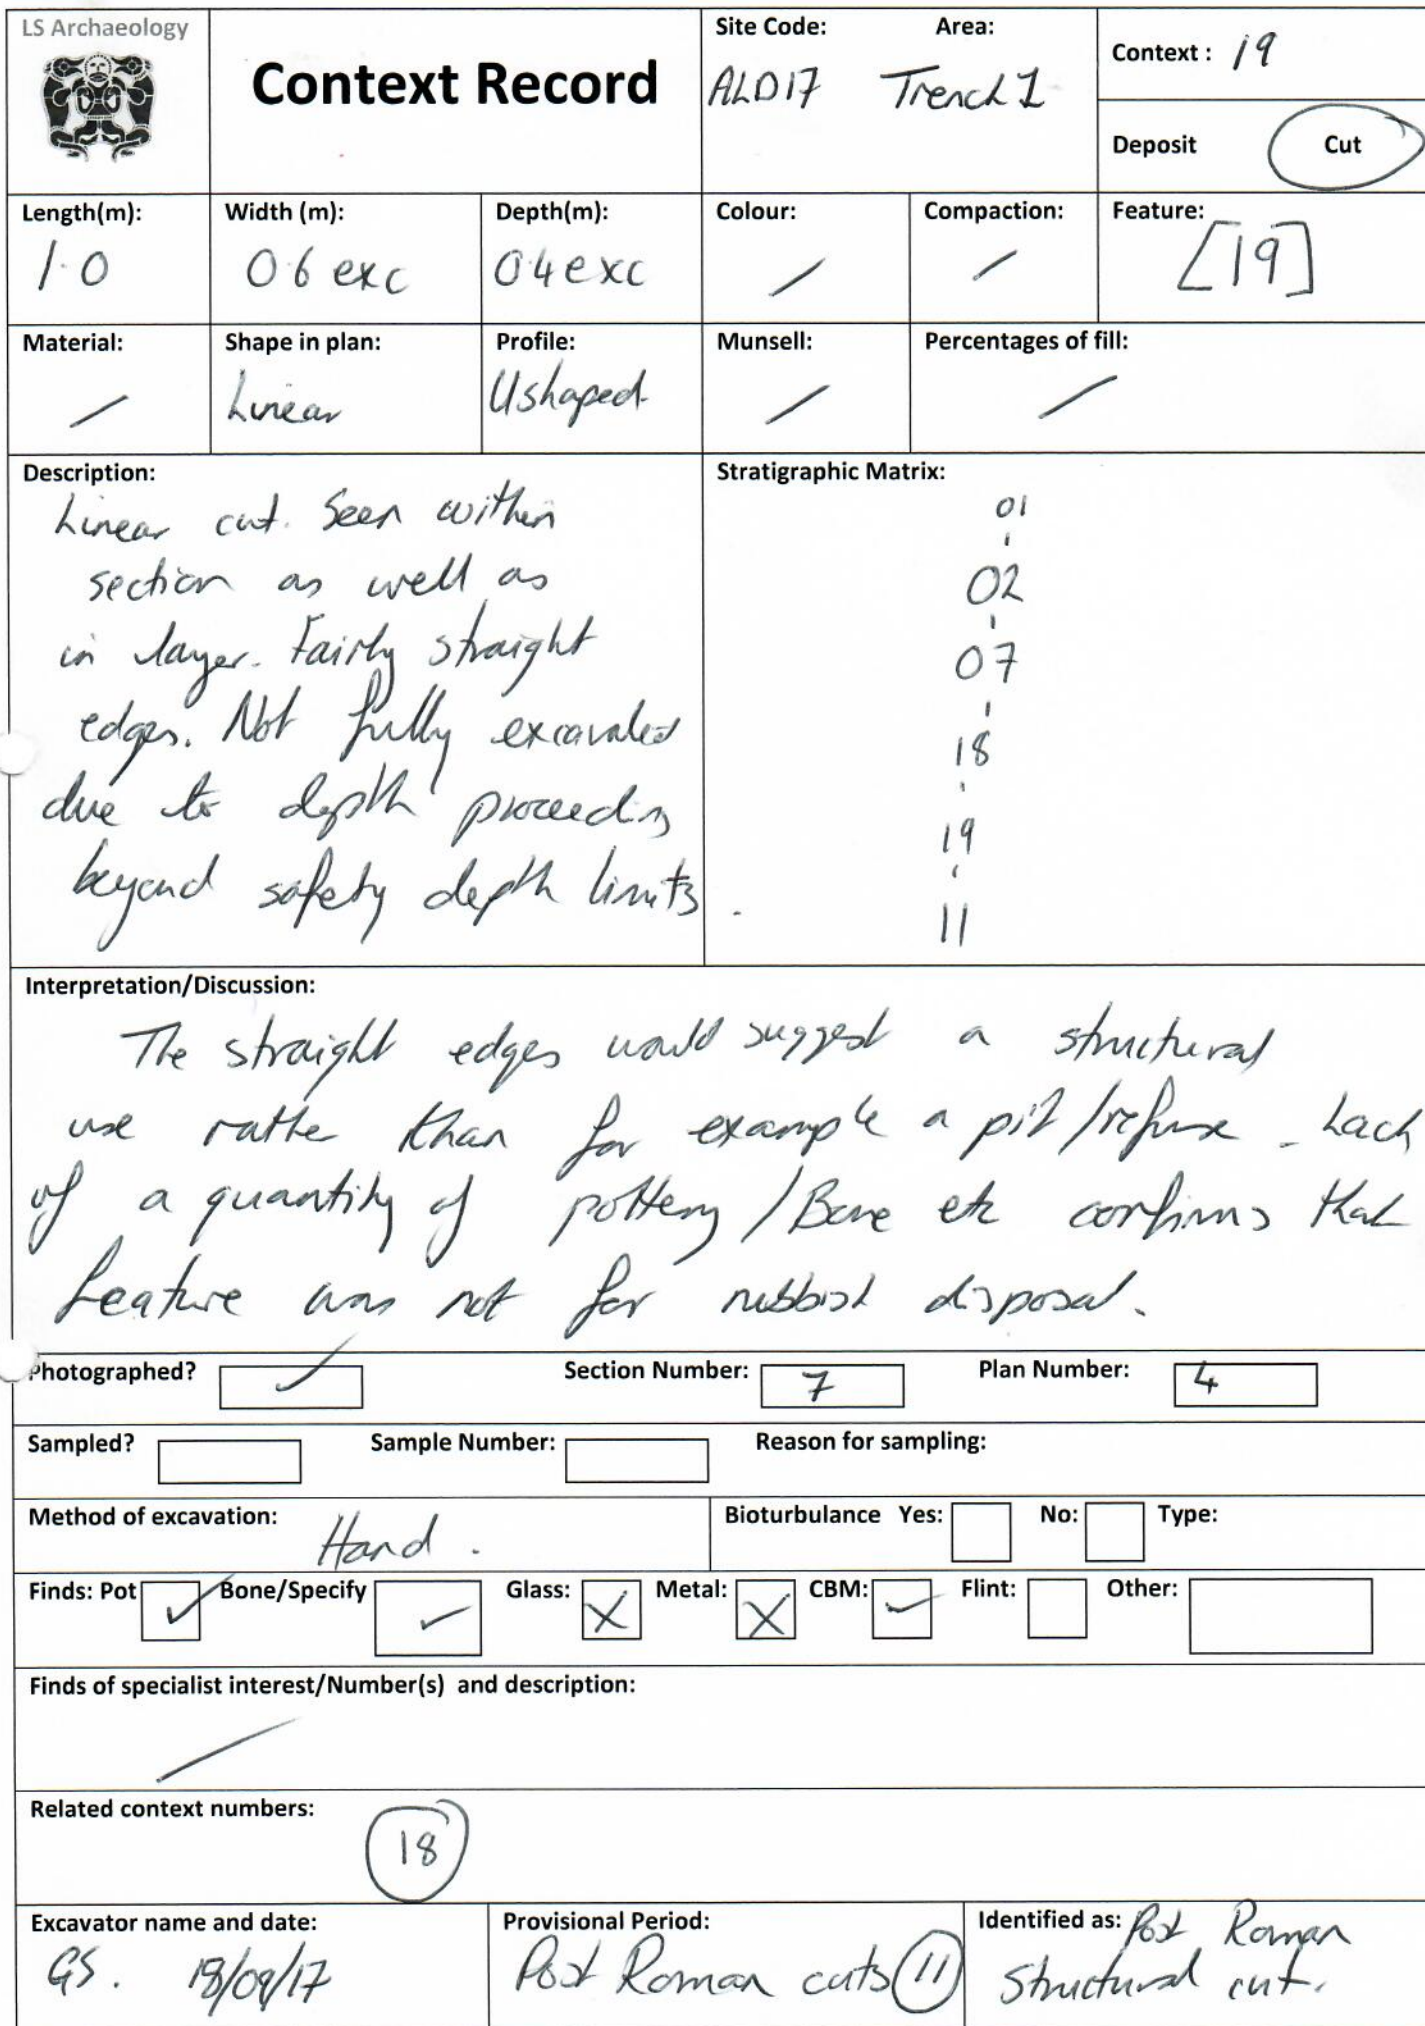 LS Archaeology
Context Record
Site Code: Area:
ALD17 Trench 1
Context : 19
Deposit Cut
Length(m): Width (m): Depth(m): Colour: Compaction: Feature:
1.0 06 exc 04 exc / / [19]
Material: Shape in plan: Profile: Munsell: Percentages of fill:
/ Linear U shaped / /
Description:
Linear cut. Seen within
section as well as
in layer. Fairly straight
edges. Not fully excavated
due to depth proceeding
beyond safety depth limits.
Stratigraphic Matrix:
01
02
07
18
19
11
Interpretation/Discussion:
The straight edges would suggest a structural
use rather than for example a pit/refuse. Lack
of a quantity of pottery/Bone etc confirms that
feature was not for rubbish disposal.
Photographed? ✓ Section Number: 7 Plan Number: 4
Sampled? Sample Number: Reason for sampling:
Method of excavation: Hand. Bioturbulance Yes: No: Type:
Finds: Pot ✓ Bone/Specify ✓ Glass: X Metal: X CBM: ✓ Flint: Other:
Finds of specialist interest/Number(s) and description:
/
Related context numbers:
18
Excavator name and date:
GS. /09/17
Provisional Period:
Post Roman cuts (11)
Identified as: Post Roman
Structural cut.